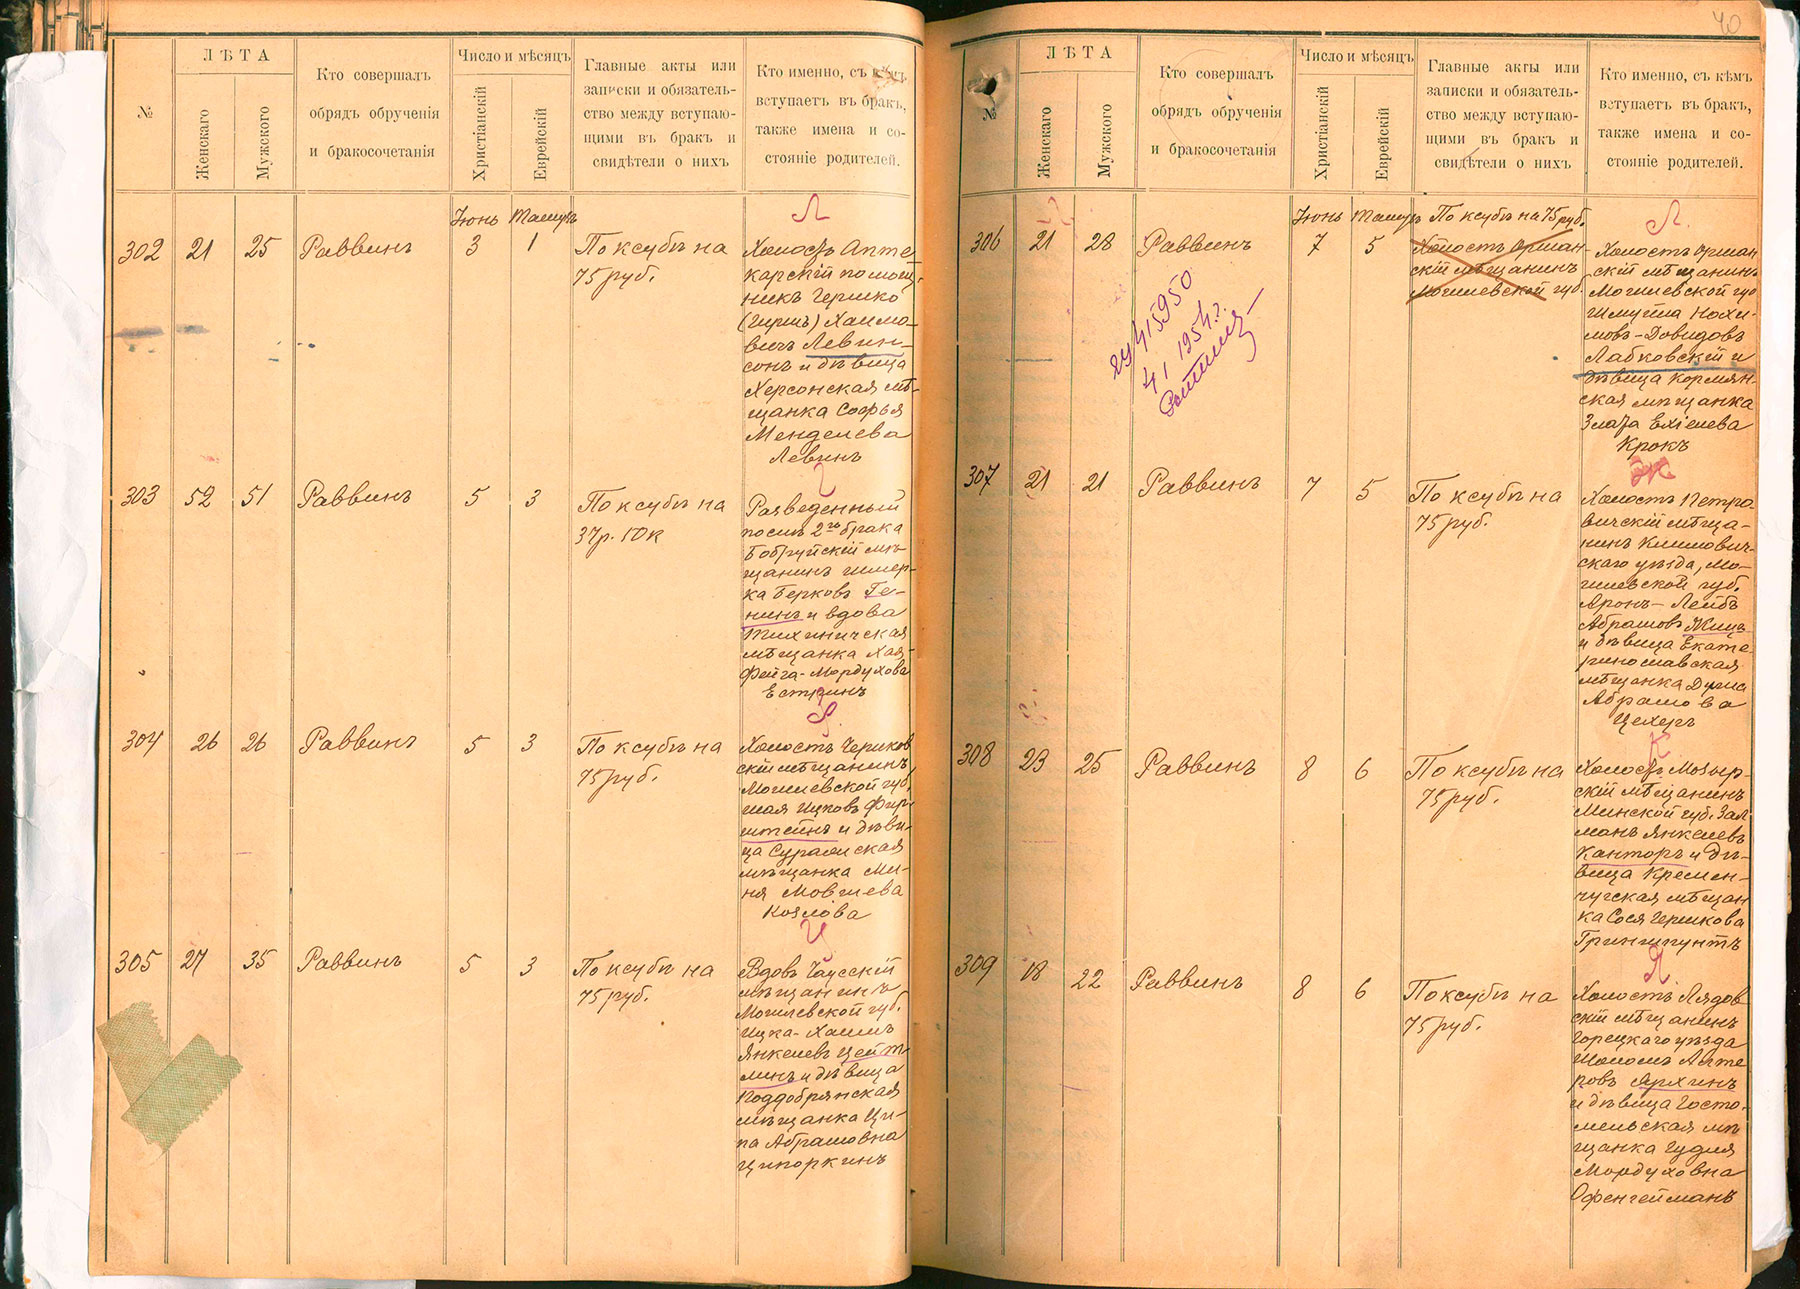 40
№
ЛѢТА
Женскаго
Мужского
Кто совершалъ
обрядъ обрученія
и бракосочетанія
Число и мѣсяцъ
Христіанскій
Еврейскій
Главные акты или
записки и обязатель-
ство между вступаю-
щими въ бракъ и
свидѣтели о нихъ
Кто именно, съ кѣмъ
вступаетъ въ бракъ,
также имена и со-
стояніе родителей.
Іюнь Тамузъ
Л
302 21 25 Раввинъ 3 1 По ксубѣ на
75 руб.
Холостъ Апте-
карскій помощ-
никъ Гершко
(Гиршъ) Хаимо-
вичъ Левин-
сонъ и дѣвица
Херсонская мѣ-
щанка Софья
Менделева
Левинъ
303 52 51 Раввинъ 5 3 По ксубѣ на
37р. 50к
Разведенный
послѣ 2го брака
Бобруйскій мѣ-
щанинъ Шмер-
ка Берковъ Ге-
нинъ и вдова
Тихиничская
мѣщанка Хая-
Фейга-Мордухова
Естринъ
304 26 26 Раввинъ 5 3 По ксубѣ на
75 руб.
Холостъ Чериков-
скій мѣщанинъ
Могилевской губ.
Шая Ицковъ Фир-
штейнъ и дѣви-
ца Суражская
мѣщанка Ми-
ня Мовшева
Козлова
Ц
305 27 35 Раввинъ 5 3 По ксубѣ на
75 руб.
Вдовъ Чаусскій
мѣщанинъ
Могилевской губ.
Ицка-Хаимъ
Янкелевъ Цейт-
линъ и дѣвица
Поддобрянская
мѣщанка Ци-
па Абрамовна
Ципоркинъ
№
ЛѢТА
Женскаго
Мужского
Кто совершалъ
обрядъ обрученія
и бракосочетанія
Число и мѣсяцъ
Христіанскій
Еврейскій
Главные акты или
записки и обязатель-
ство между вступаю-
щими въ бракъ и
свидѣтели о нихъ
Кто именно, съ кѣмъ
вступаетъ въ бракъ,
также имена и со-
стояніе родителей.
Іюнь Тамузъ По ксубѣ на 75 руб.
Л
306 21 28 Раввинъ 7 5
Холостъ Оршан-
скій мѣщанинъ
Могилевской губ.
Холостъ Оршан-
скій мѣщанинъ
Могилевской губ
Шмуйла Нохи-
мовъ-Довидовъ
Лабковскій и
дѣвица Кормян-
ская мѣщанка
Злата Ехіелева
Крокъ
415950
41 1954г.
Ж
307 21 21 Раввинъ 7 5 По ксубѣ на
75 руб.
Холостъ Петро-
вичскій мѣща-
нинъ Климович-
скаго уѣзда, Мо-
гилевской губ.
Аронъ-Лейбъ
Абрамовъ Жицъ
и дѣвица Екате-
ринославская
мѣщанка Дуня
Абрамова
Цехеръ
К
308 23 25 Раввинъ 8 6 По ксубѣ на
75 руб.
Холостъ Мозыр-
скій мѣщанинъ
Минской губ. Зал-
манъ Янкелевъ
Канторъ и дѣ-
вица Кремен-
чугская мѣщан-
ка Сося Гершкова
Грингпунтъ
Я
309 18 22 Раввинъ 8 6 По ксубѣ на
75 руб.
Холостъ Лядов-
скій мѣщанинъ
Горецкаго уѣзда
Шоломъ Алте-
ровъ Ярхинъ
и дѣвица Госто-
мельская мѣ-
щанка Гудля
Мордуховна
Офенгейманъ